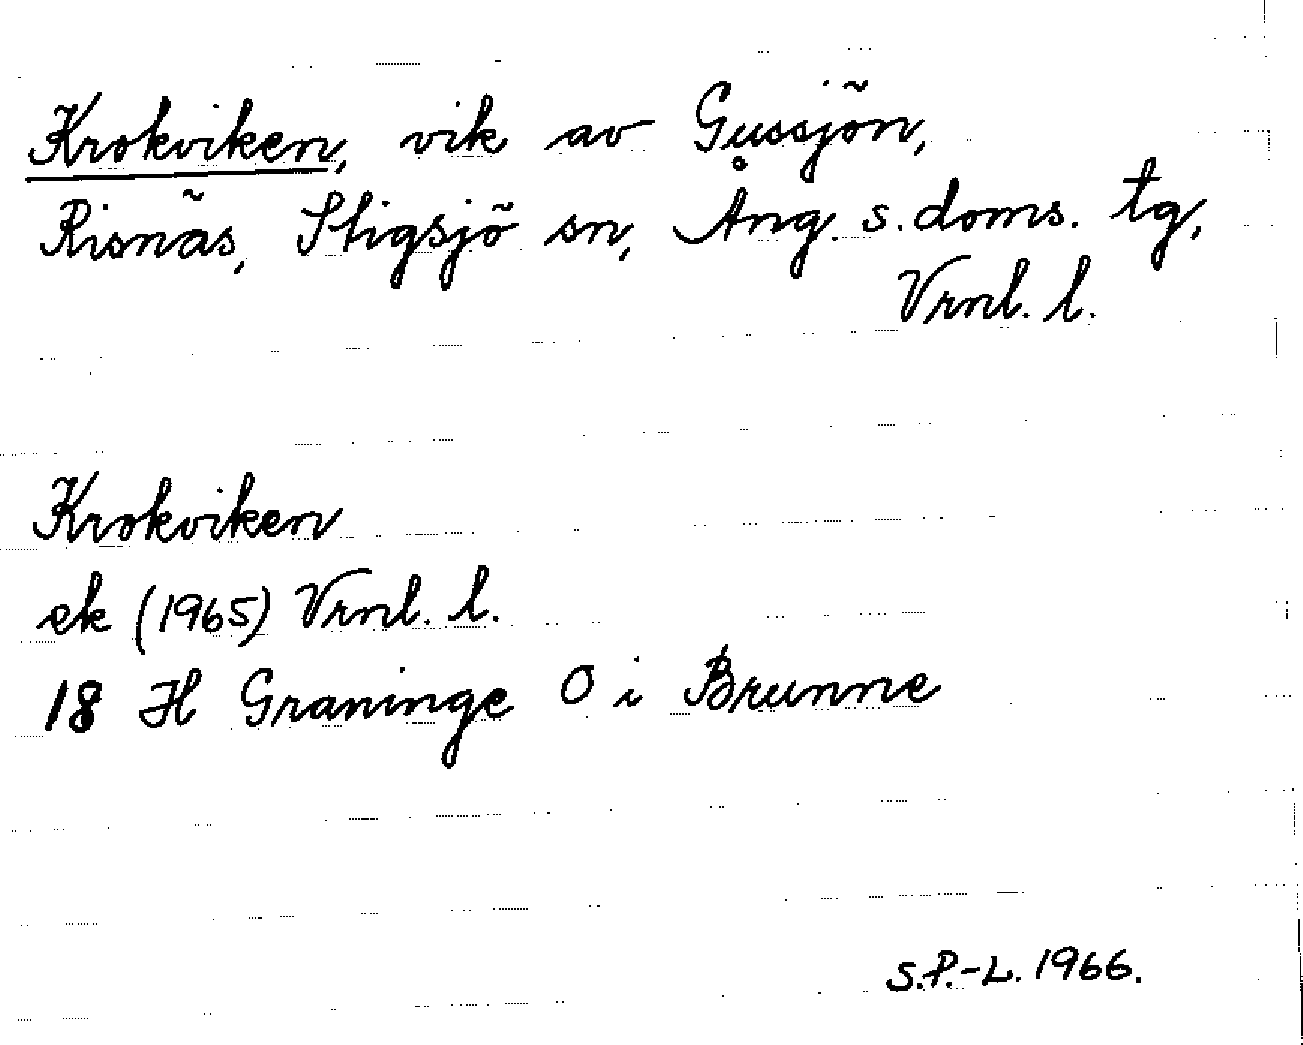 Krokviken, vik av Gussjön,
Risnäs, Stigsjö sn, Ång. s. doms. tg,
Vrnl. l.
Krokviken
ek (1965) Vrnl. l.
18 H Graninge O i Brunne
S.P.-L. 1966.